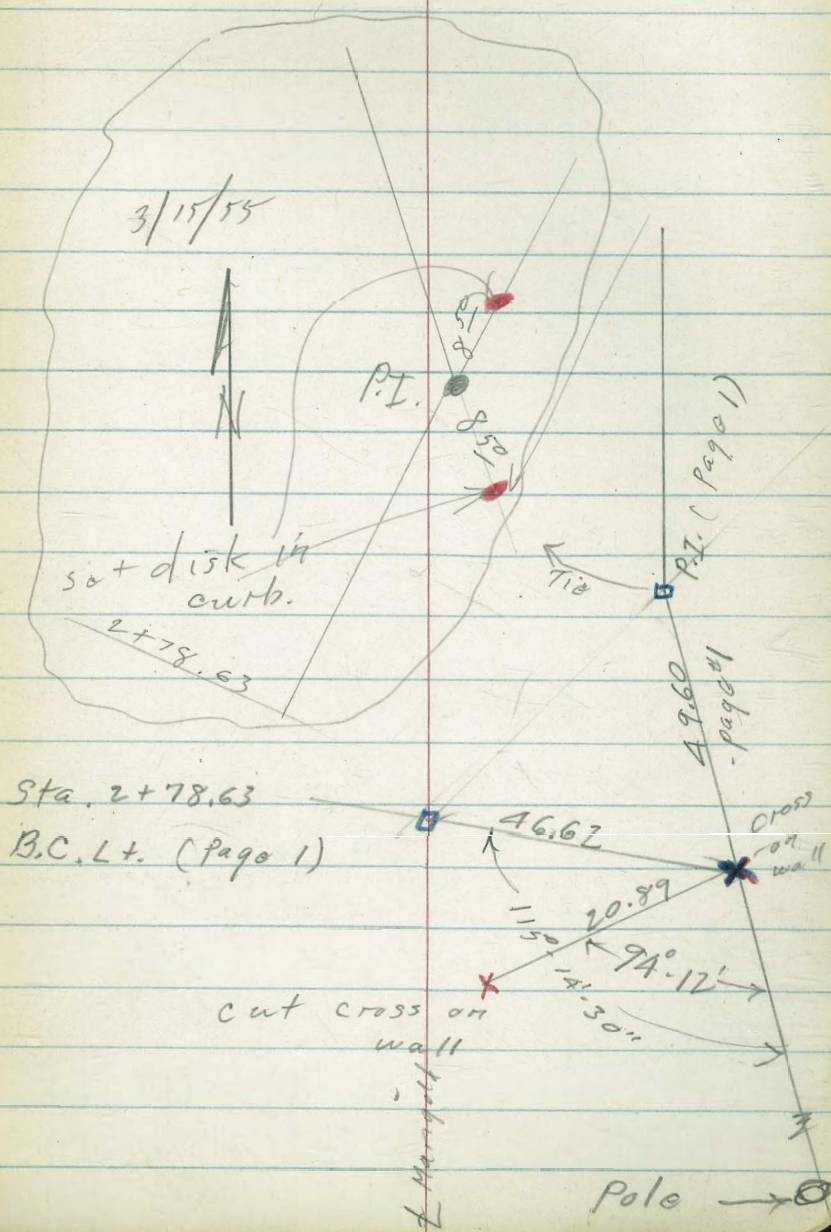 3/15/55
N
P.I.
8.50
8.50
set disk in
curb.
2+78.63
Tie
P.I. (Page 1)
49.60
-page #1
Sta. 2+78.63
B.C. Lt. (Page 1)
46.62
cross
on
wall
20.89
94°-12'
115°-14'-30"
cut cross on
wall
Pole